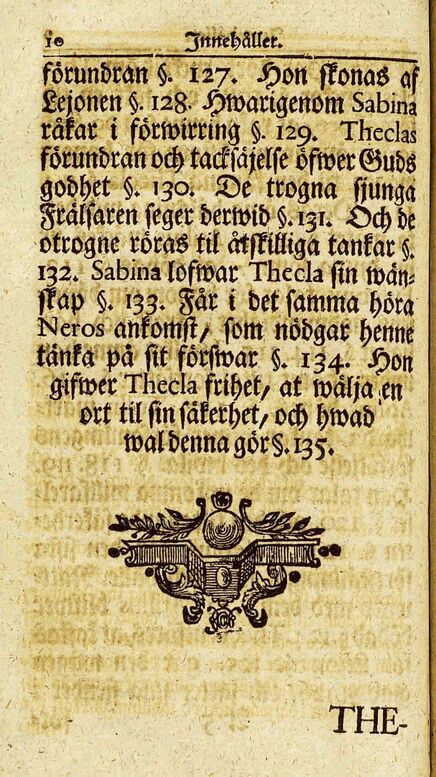 10 Innehållet.
förundran §. 127. Hon skonas af
Lejonen §. 128. Hwarigenom Sabina
råkar i förwirring §. 129. Theclas
förundran och tacksäjelse öfwer Guds
godhet §. 130. De trogna sjunga
Frälsaren seger derwid §. 131. Och de
otrogne röras til åtskilliga tankar §.
132. Sabina lofwar Thecla sin wän-
skap §. 133. Får i det samma höra
Neros ankomst, som nödgar henne
tänka på sit förswar §. 134. Hon
gifwer Thecla frihet, at wälja en
ort til sin säkerhet, och hwad
wal denna gör §. 135.
THE-